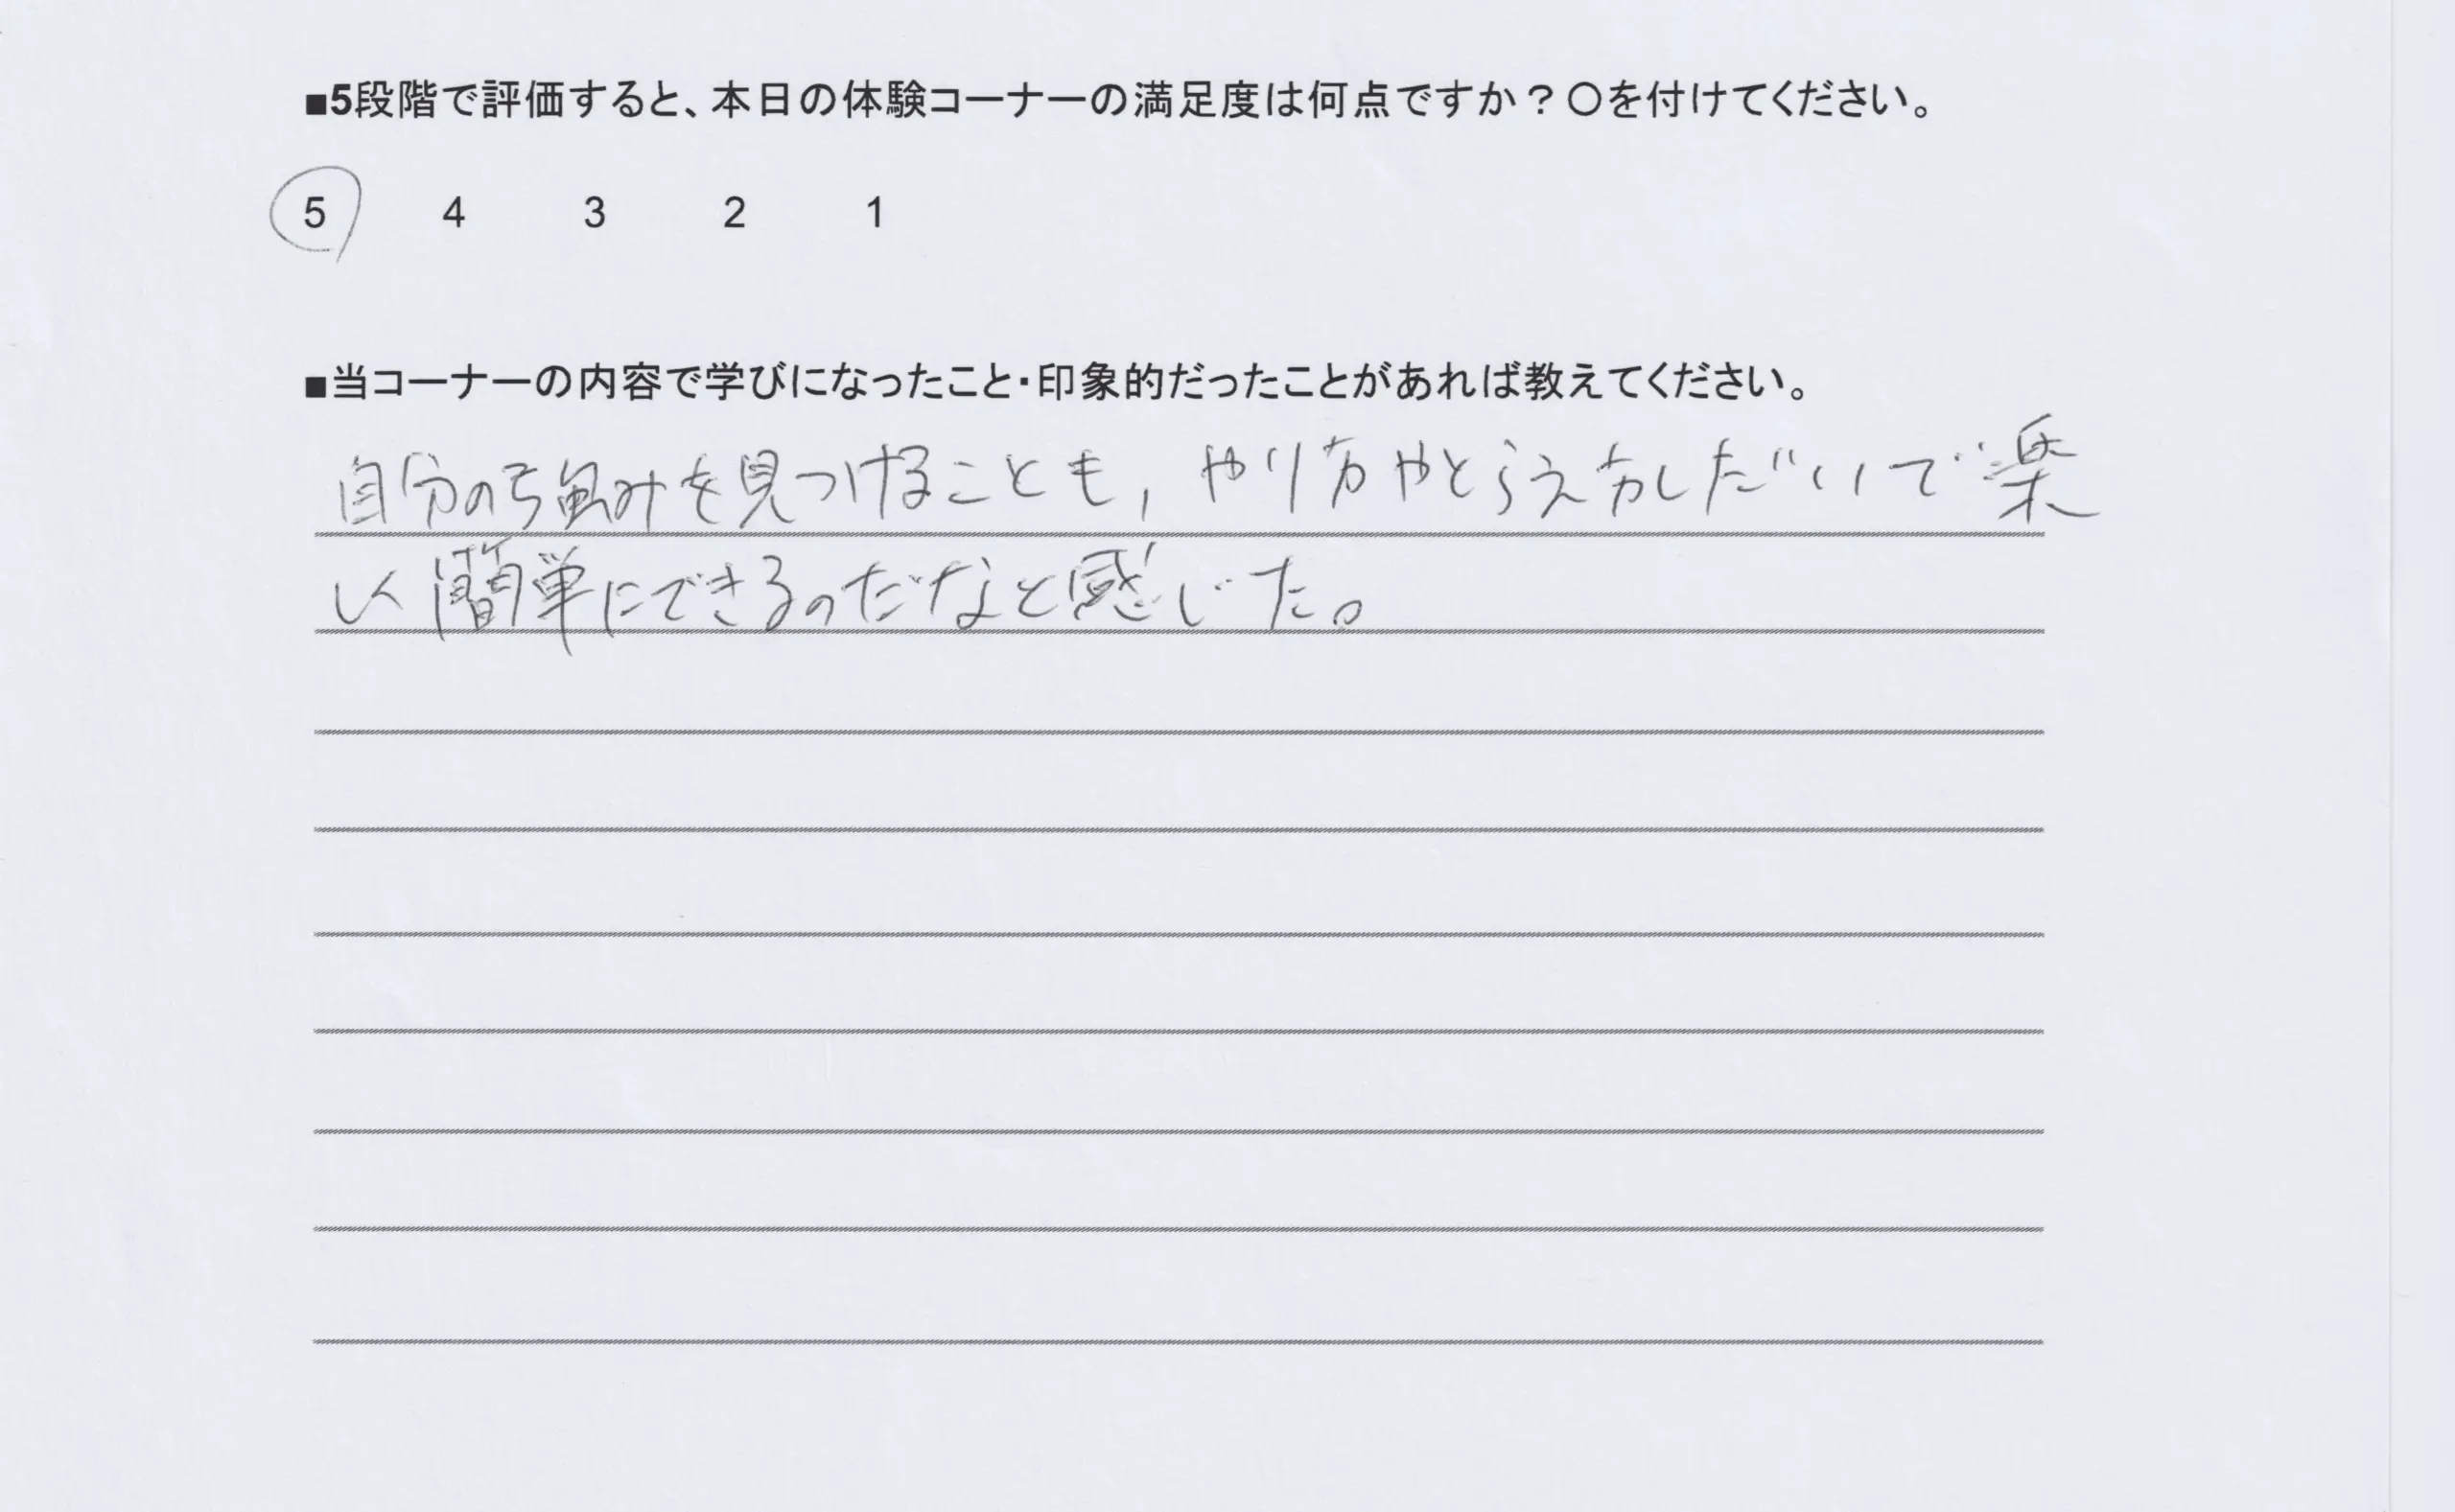 ■5段階で評価すると、本日の体験コーナーの満足度は何点ですか？〇を付けてください。
5 4 3 2 1
■当コーナーの内容で学びになったこと・印象的だったことがあれば教えてください。
自分の強みを見つけることも，やり方やとらえ方しだいで楽
しく簡単にできるのだなと感じた。